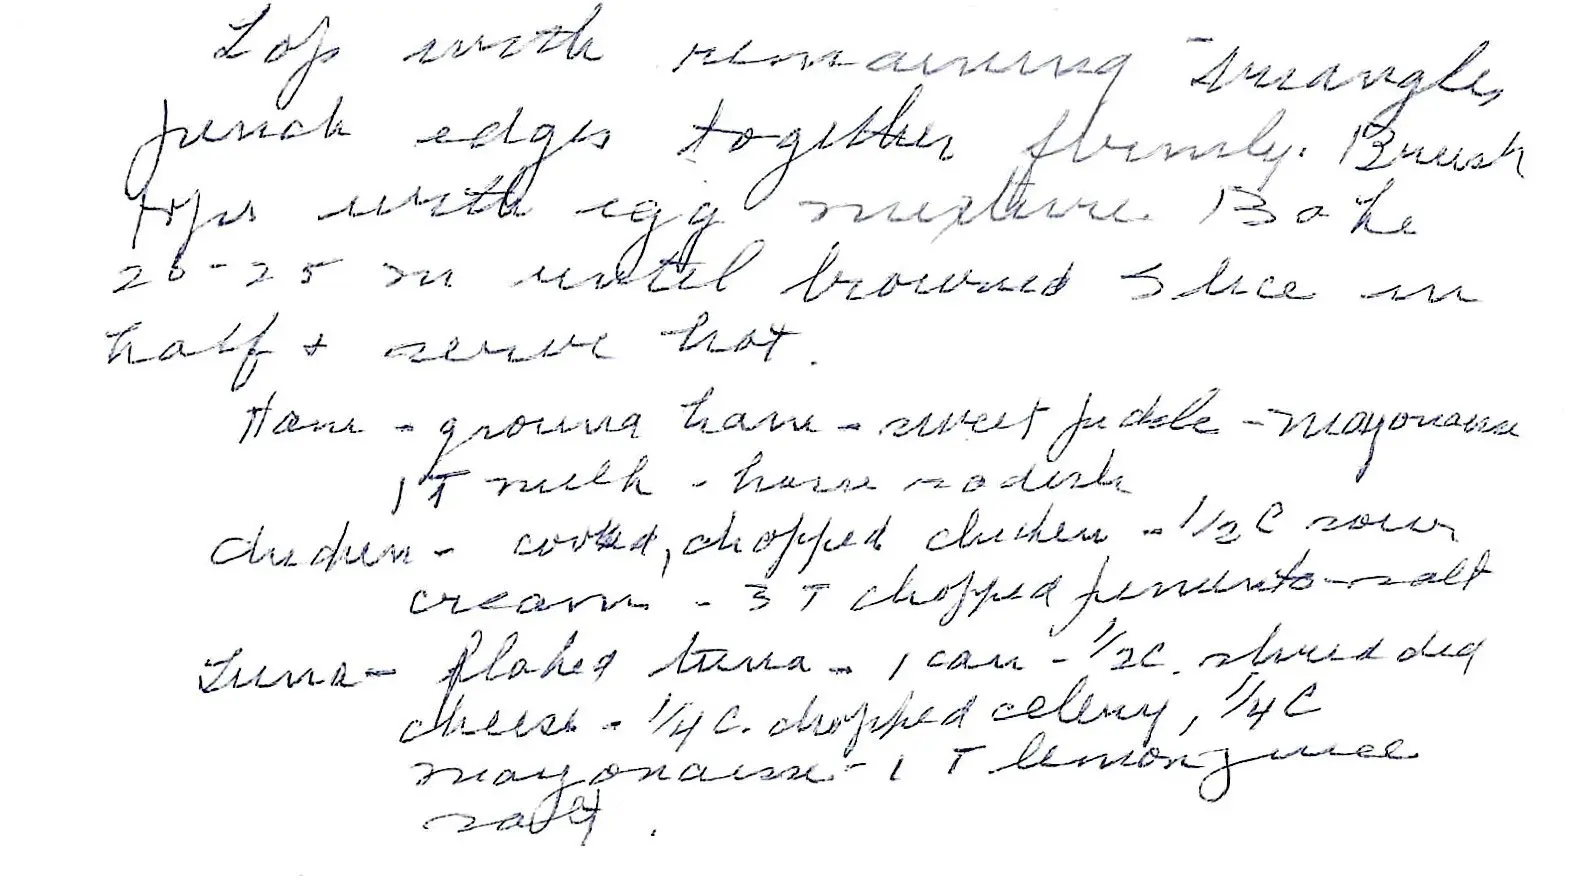 Top with remaining triangles
pinch edges together firmly. Brush
tops with egg mixture. Bake
20-25 m until browned Slice in
half + serve hot.
Ham - ground ham - sweet pickle - mayonaise
1 T milk - horse radish
Chicken - cooked, chopped chicken - 1/2 C sour
cream - 3 T chopped pimento - salt
Tuna - flaked tuna - 1 can - 1/2 C. shredded
cheese - 1/4 C. chopped celery, 1/4 C
mayonaise - 1 T lemon juice
salt.